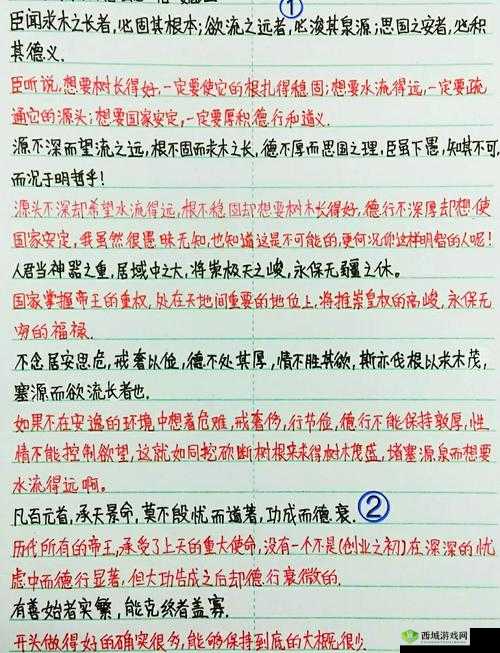 ①
臣闻求木之长者,必固其根本;欲流之远者,必浚其泉源;思国之安者,必积
其德义.
臣听说,想要树长得好,一定要使它的根扎得稳固;想要水流得远,一定要疏
通它的源头;想要国家安定,一定要厚积德行和道义.
源不深而望流之远,根不固而求木之长,德不厚而思国之理,臣虽下愚,知其不可,
而况于明哲乎!
源头不深却希望水流得远,根不稳固却想要树木长得好,德行不深厚却想使
国家安定,我虽然很愚昧无知,也知道这是不可能的,更何况你这样明智的人呢!
人君当神器之重,居域中之大,将崇极天之峻,永保无疆之休。
国家掌握帝王的重权,处在天地间重要的地位上,将推崇皇权的高峻,永保无
穷的福禄.
不念居安思危,戒奢以俭,德不处其厚,情不胜其欲,斯亦伐根以求木茂,
塞源而欲流长者也.
如果不在安逸的环境中想着危难,戒奢侈,行节俭,德行不能保持敦厚,性
情不能控制欲望,这就如同挖砍断树根来求得树木茂盛,堵塞源泉而想要
水流得远啊。
凡百元首,承天景命,莫不殷忧而道著,功成而德衰. ②
历代所有的帝王,承受了上天的重大使命,没有一个不是(创业之初)在深深的忧
虑中而德行显著,但大功告成之后却德行衰微的.
有善始者实繁,能克终者盖寡.
开头做得好的确实很多,能够保持到底的大概很少.
西域游戏网